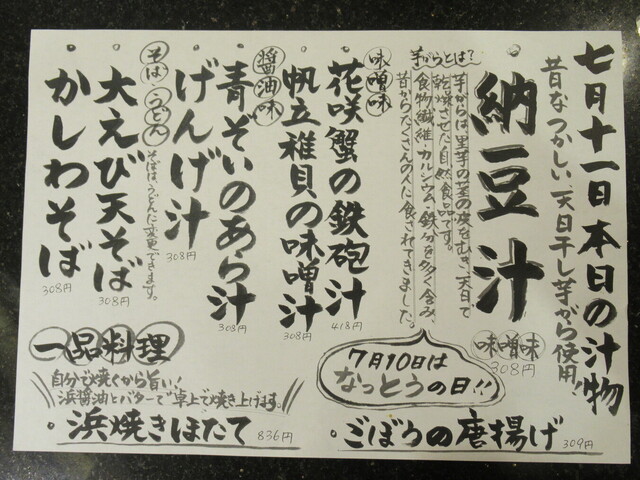 七月十一日本日の汁物
昔なつかしい、天日干し芋がら使用！
納豆汁
味噌味
308円
芋がらとは？
芋がらは里芋の茎の皮をむき、天日で
乾燥させた自然食品です。
食物繊維・カルシウム・鉄分を多く含み、
昔からたくさんの人に食されてきました。
味噌味
花咲蟹の鉄砲汁
418円
帆立稚貝の味噌汁
308円
醤油味
青ぞいのあら汁
308円
げんげ汁
308円
そば・うどん
そばは、うどんに変更できます。
大えび天そば
308円
かしわそば
308円
7月10日は
なっとうの日!!
一品料理
自分で焼くから旨い！
浜醤油とバターで卓上で焼き上げます。
・浜焼きほたて 836円
・ごぼうの唐揚げ 309円